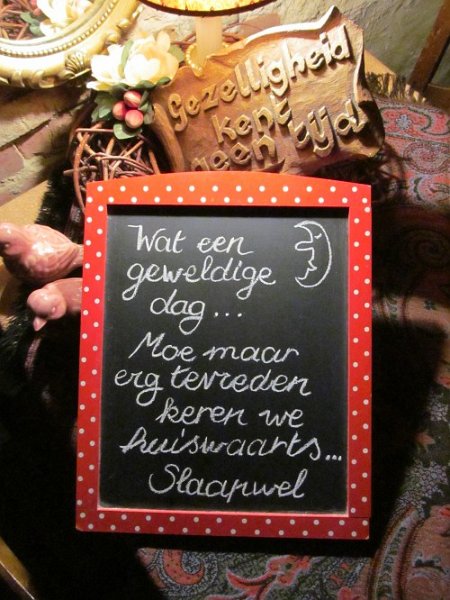 Gezelligheid
kent
geen tijd
Wat een
geweldige
dag...
Moe maar
erg tevreden
keren we
huiswaarts...
Slaapwel